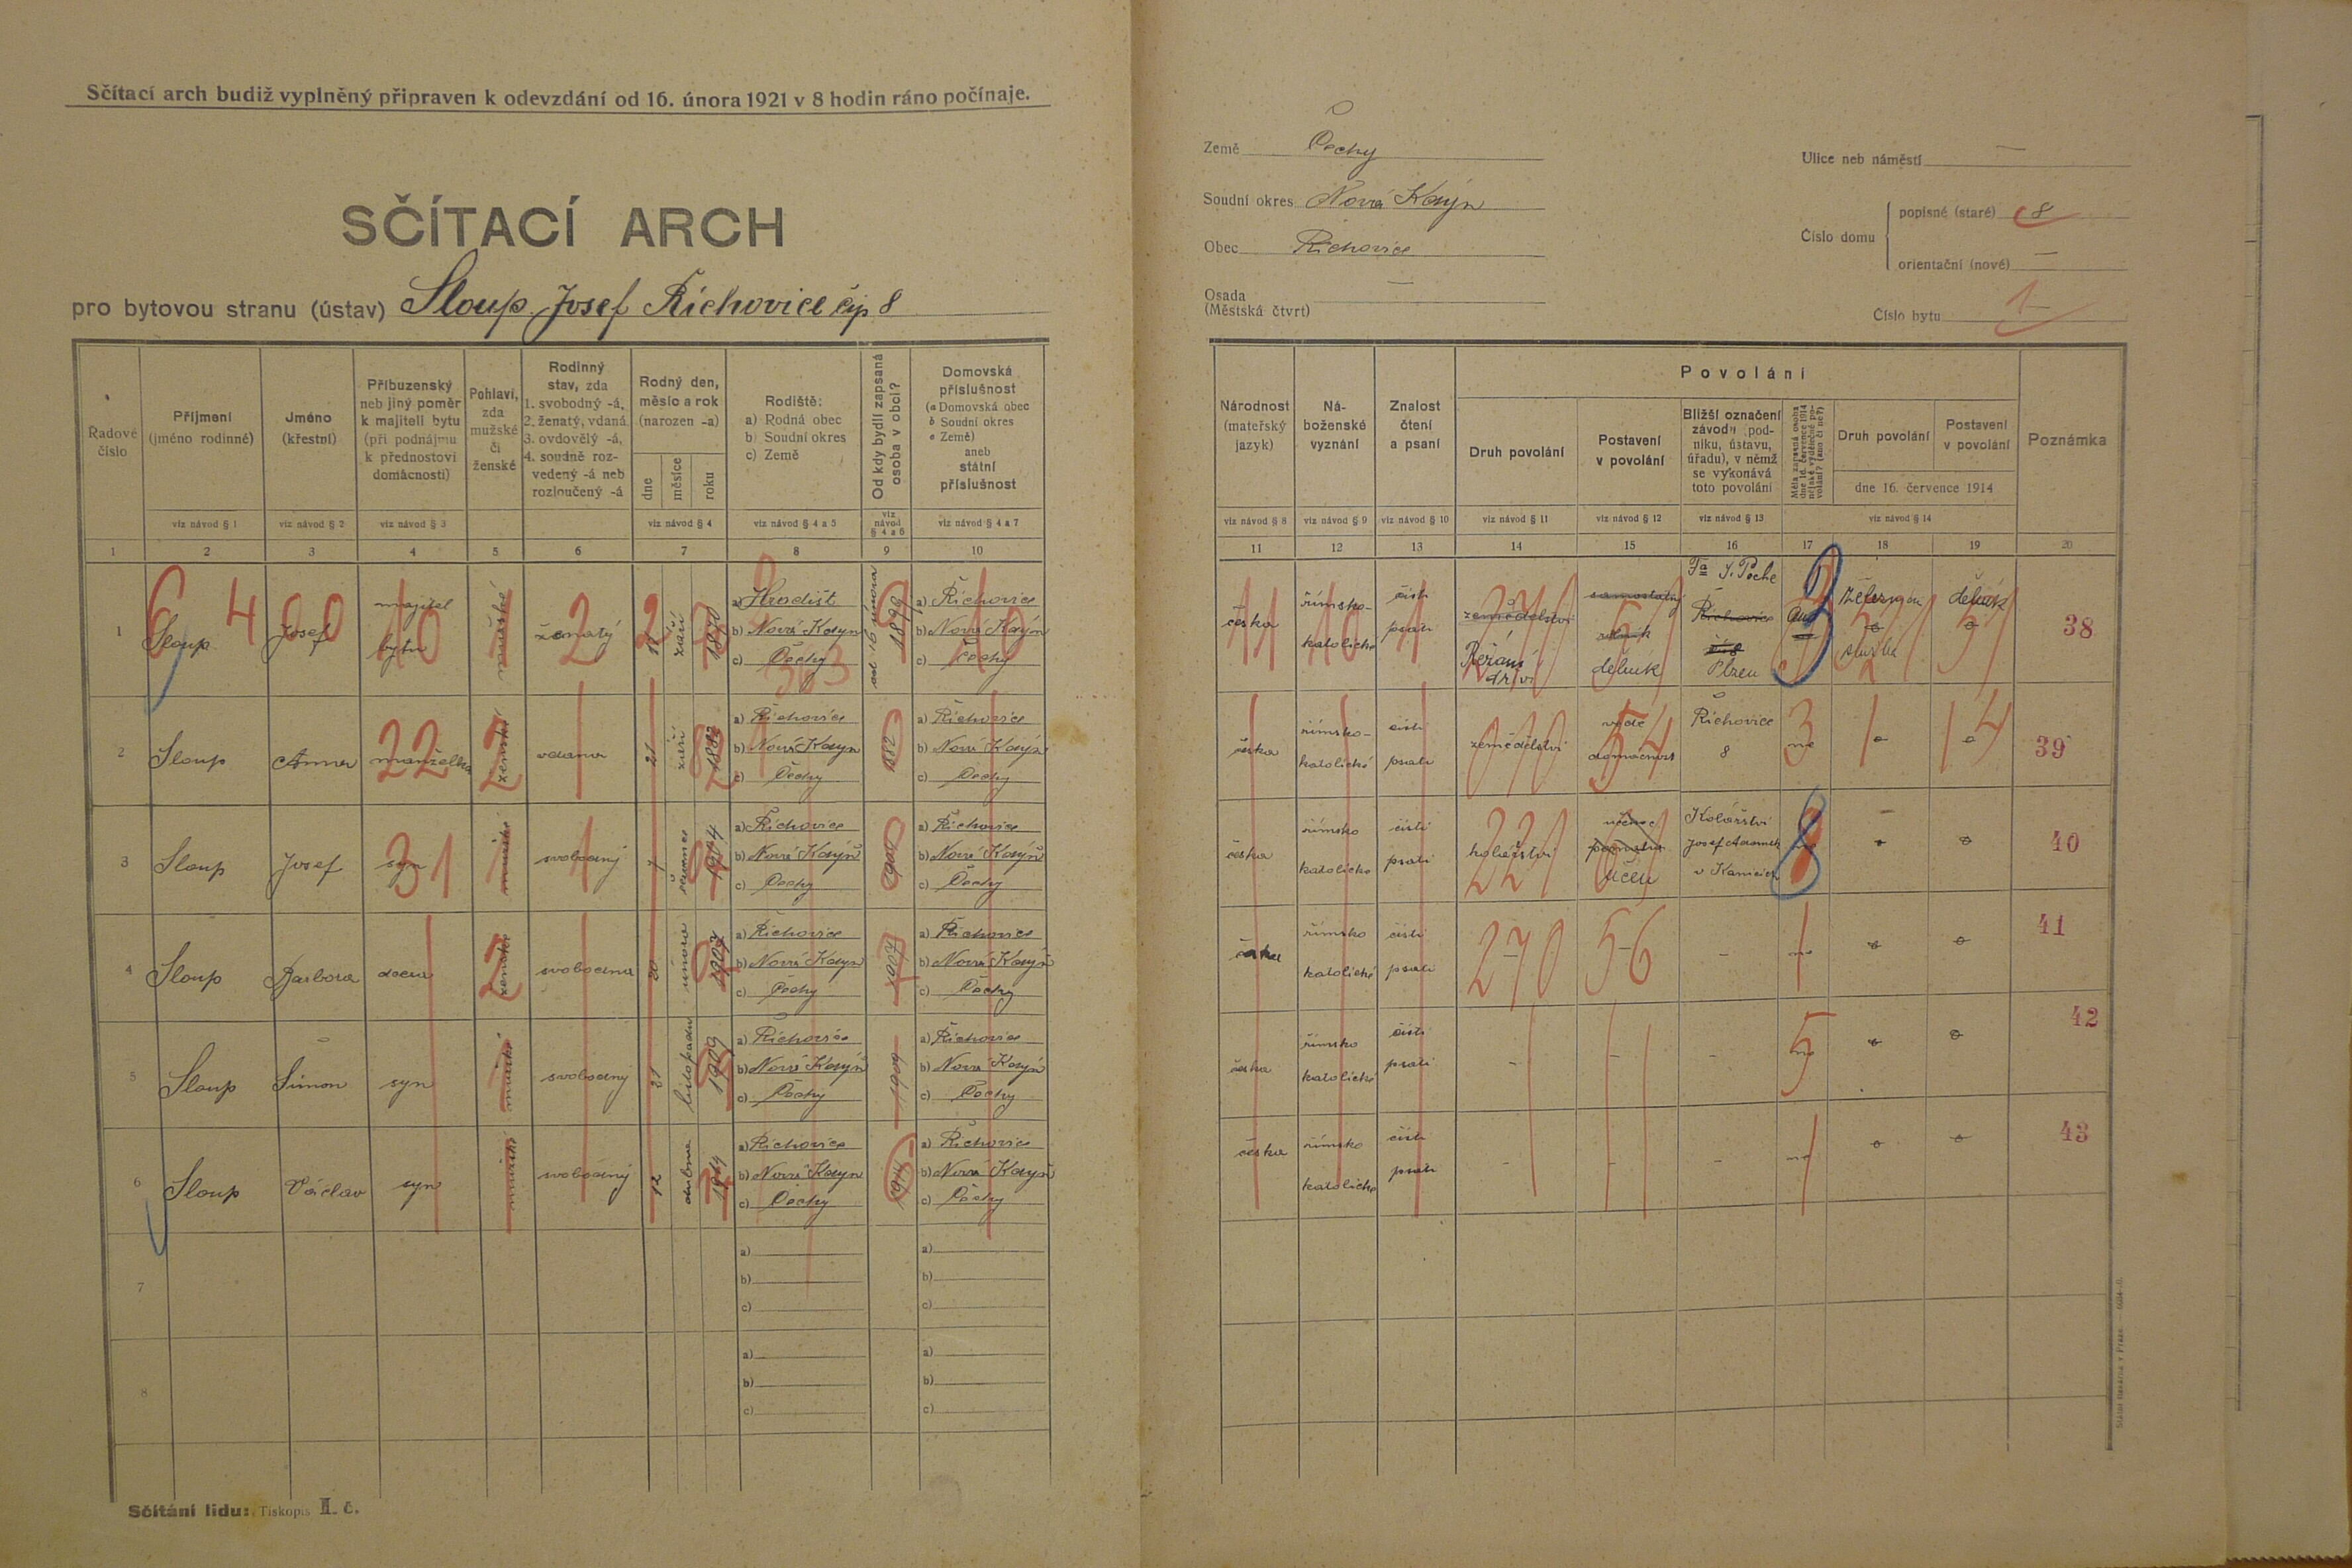 Sčítací arch budiž vyplněný připraven k odevzdání od 16. února 1921 v 8 hodin ráno počínaje.
SČÍTACÍ ARCH
pro bytovou stranu (ústav) Sloup Josef Řichovice čp 8
Řadové číslo
Příjmení
(jméno rodinné)
viz návod § 1
Jméno
(křestní)
viz návod § 2
Příbuzenský
neb jiný poměr
k majiteli bytu
(při podnájmu
k přednostovi
domácnosti)
viz návod § 3
Pohlaví,
zda
mužské
či
ženské
Rodinný
stav, zda
1. svobodný -á,
2. ženatý, vdaná
3. ovdovělý -á,
4. soudně roz-
vedený -á neb
rozloučený -á
Rodný den,
měsíc a rok
(narozen -a)
dne
měsíce
roku
viz návod § 4
Rodiště:
a) Rodná obec
b) Soudní okres
c) Země
viz návod § 4 a 5
Od kdy bydlí zapsaná
osoba v obci?
viz
návod
§ 4 a 6
Domovská
příslušnost
(a Domovská obec
b Soudní okres
c Země)
aneb
státní
příslušnost
viz návod § 4 a 7
1 2 3 4 5 6 7 8 9 10
1 Sloup Josef majitel bytu mužské ženatý září 1870
a) Hradišt
b) Nová Kdýn
c) Čechy
od 16 února 1899
a) Řichovice
b) Nová Kdýn
c) Čechy
2 Sloup Anna manželka ženské vdaná 21 září 1882
a) Řichovice
b) Nová Kdýn
c) Čechy
1882
a) Řichovice
b) Nová Kdýn
c) Čechy
3 Sloup Josef syn mužské svobodný 7 1904
a) Řichovice
b) Nová Kdýň
c) Čechy
a) Řichovice
b) Nová Kdýň
c) Čechy
4 Sloup Barbora dcera ženské svobodna 20 února 1907
a) Řichovice
b) Nová Kdýn
c) Čechy
1907
a) Řichovice
b) Nová Kdýň
c) Čechy
5 Sloup Šimon syn mužské svobodný 21 listopadu 1909
a) Řichovice
b) Nová Kdýň
c) Čechy
1909
a) Řichovice
b) Nová Kdýn
c) Čechy
6 Sloup Václav syn mužské svobodný 12 dubna 1914
a) Řichovice
b) Nová Kdyn
c) Čechy
1914
a) Řichovice
b) Nová Kdyň
c) Čechy
7
a)
b)
c)
a)
b)
c)
8
a)
b)
c)
a)
b)
c)
Sčítání lidu: Tiskopis II. č.
Země Čechy
Soudní okres Nová Kdýn
Obec Řichovice
Osada —
(Městská čtvrt)
Ulice neb náměstí —
Číslo domu
popisné (staré) 8
orientační (nové) —
Číslo bytu 1
Národnost
(mateřský
jazyk)
viz návod § 8
Ná-
boženské
vyznání
viz návod § 9
Znalost
čtení
a psaní
viz návod § 10
Povolání
Druh povolání
viz návod § 11
Postavení
v povolání
viz návod § 12
Bližší označení
závodu (pod-
niku, ústavu,
úřadu), v němž
se vykonává
toto povolání
viz návod § 13
Měla zapsaná osoba
dne 16. července 1914
nějaké výdělečné po-
volání? (ano či ne?)
Druh povolání
Postavení
v povolání
dne 16. července 1914
viz návod § 14
Poznámka
11 12 13 14 15 16 17 18 19 20
česka římsko-katolické čisti psati zemědelství Řezání samostatný dělník Fa Řichovice Plzeň dělník 38
česka římsko-katolické čisti psati zemědělství domácnost Řichovice 8 ne 39
česka římsko katolické čisti psati kolářství učeň Kolářství Josef 40
česka římsko katolické čisti psati 270 56 – ne 41
česka římsko katolické čisti psati – – – ne 42
česka římsko katolické čisti psati – – – ne 43
Státní tiskárna v Praze.